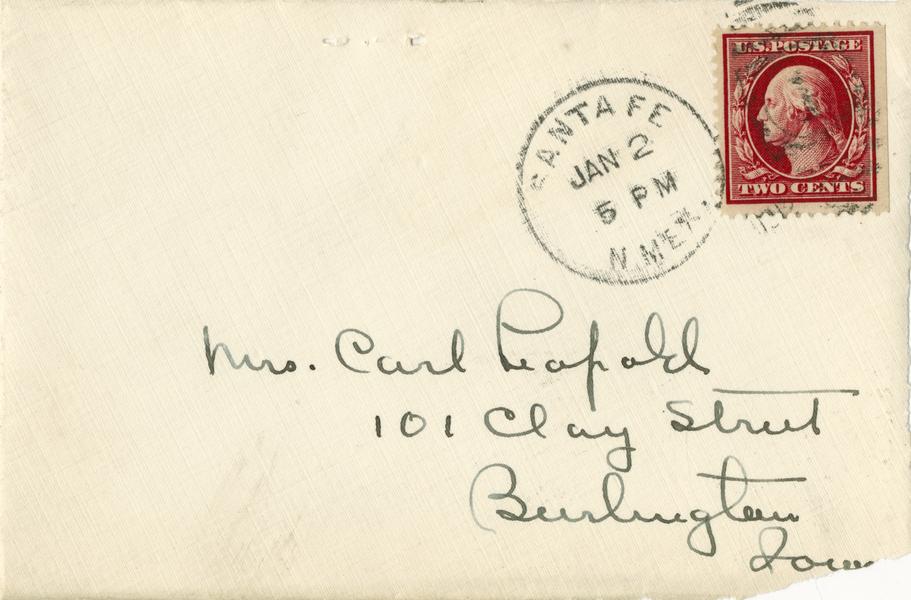 U.S. POSTAGE
TWO CENTS
SANTA FE
JAN 2
5 PM
N. MEX.
Mrs. Carl Leopold
101 Clay Street
Burlington
Iowa